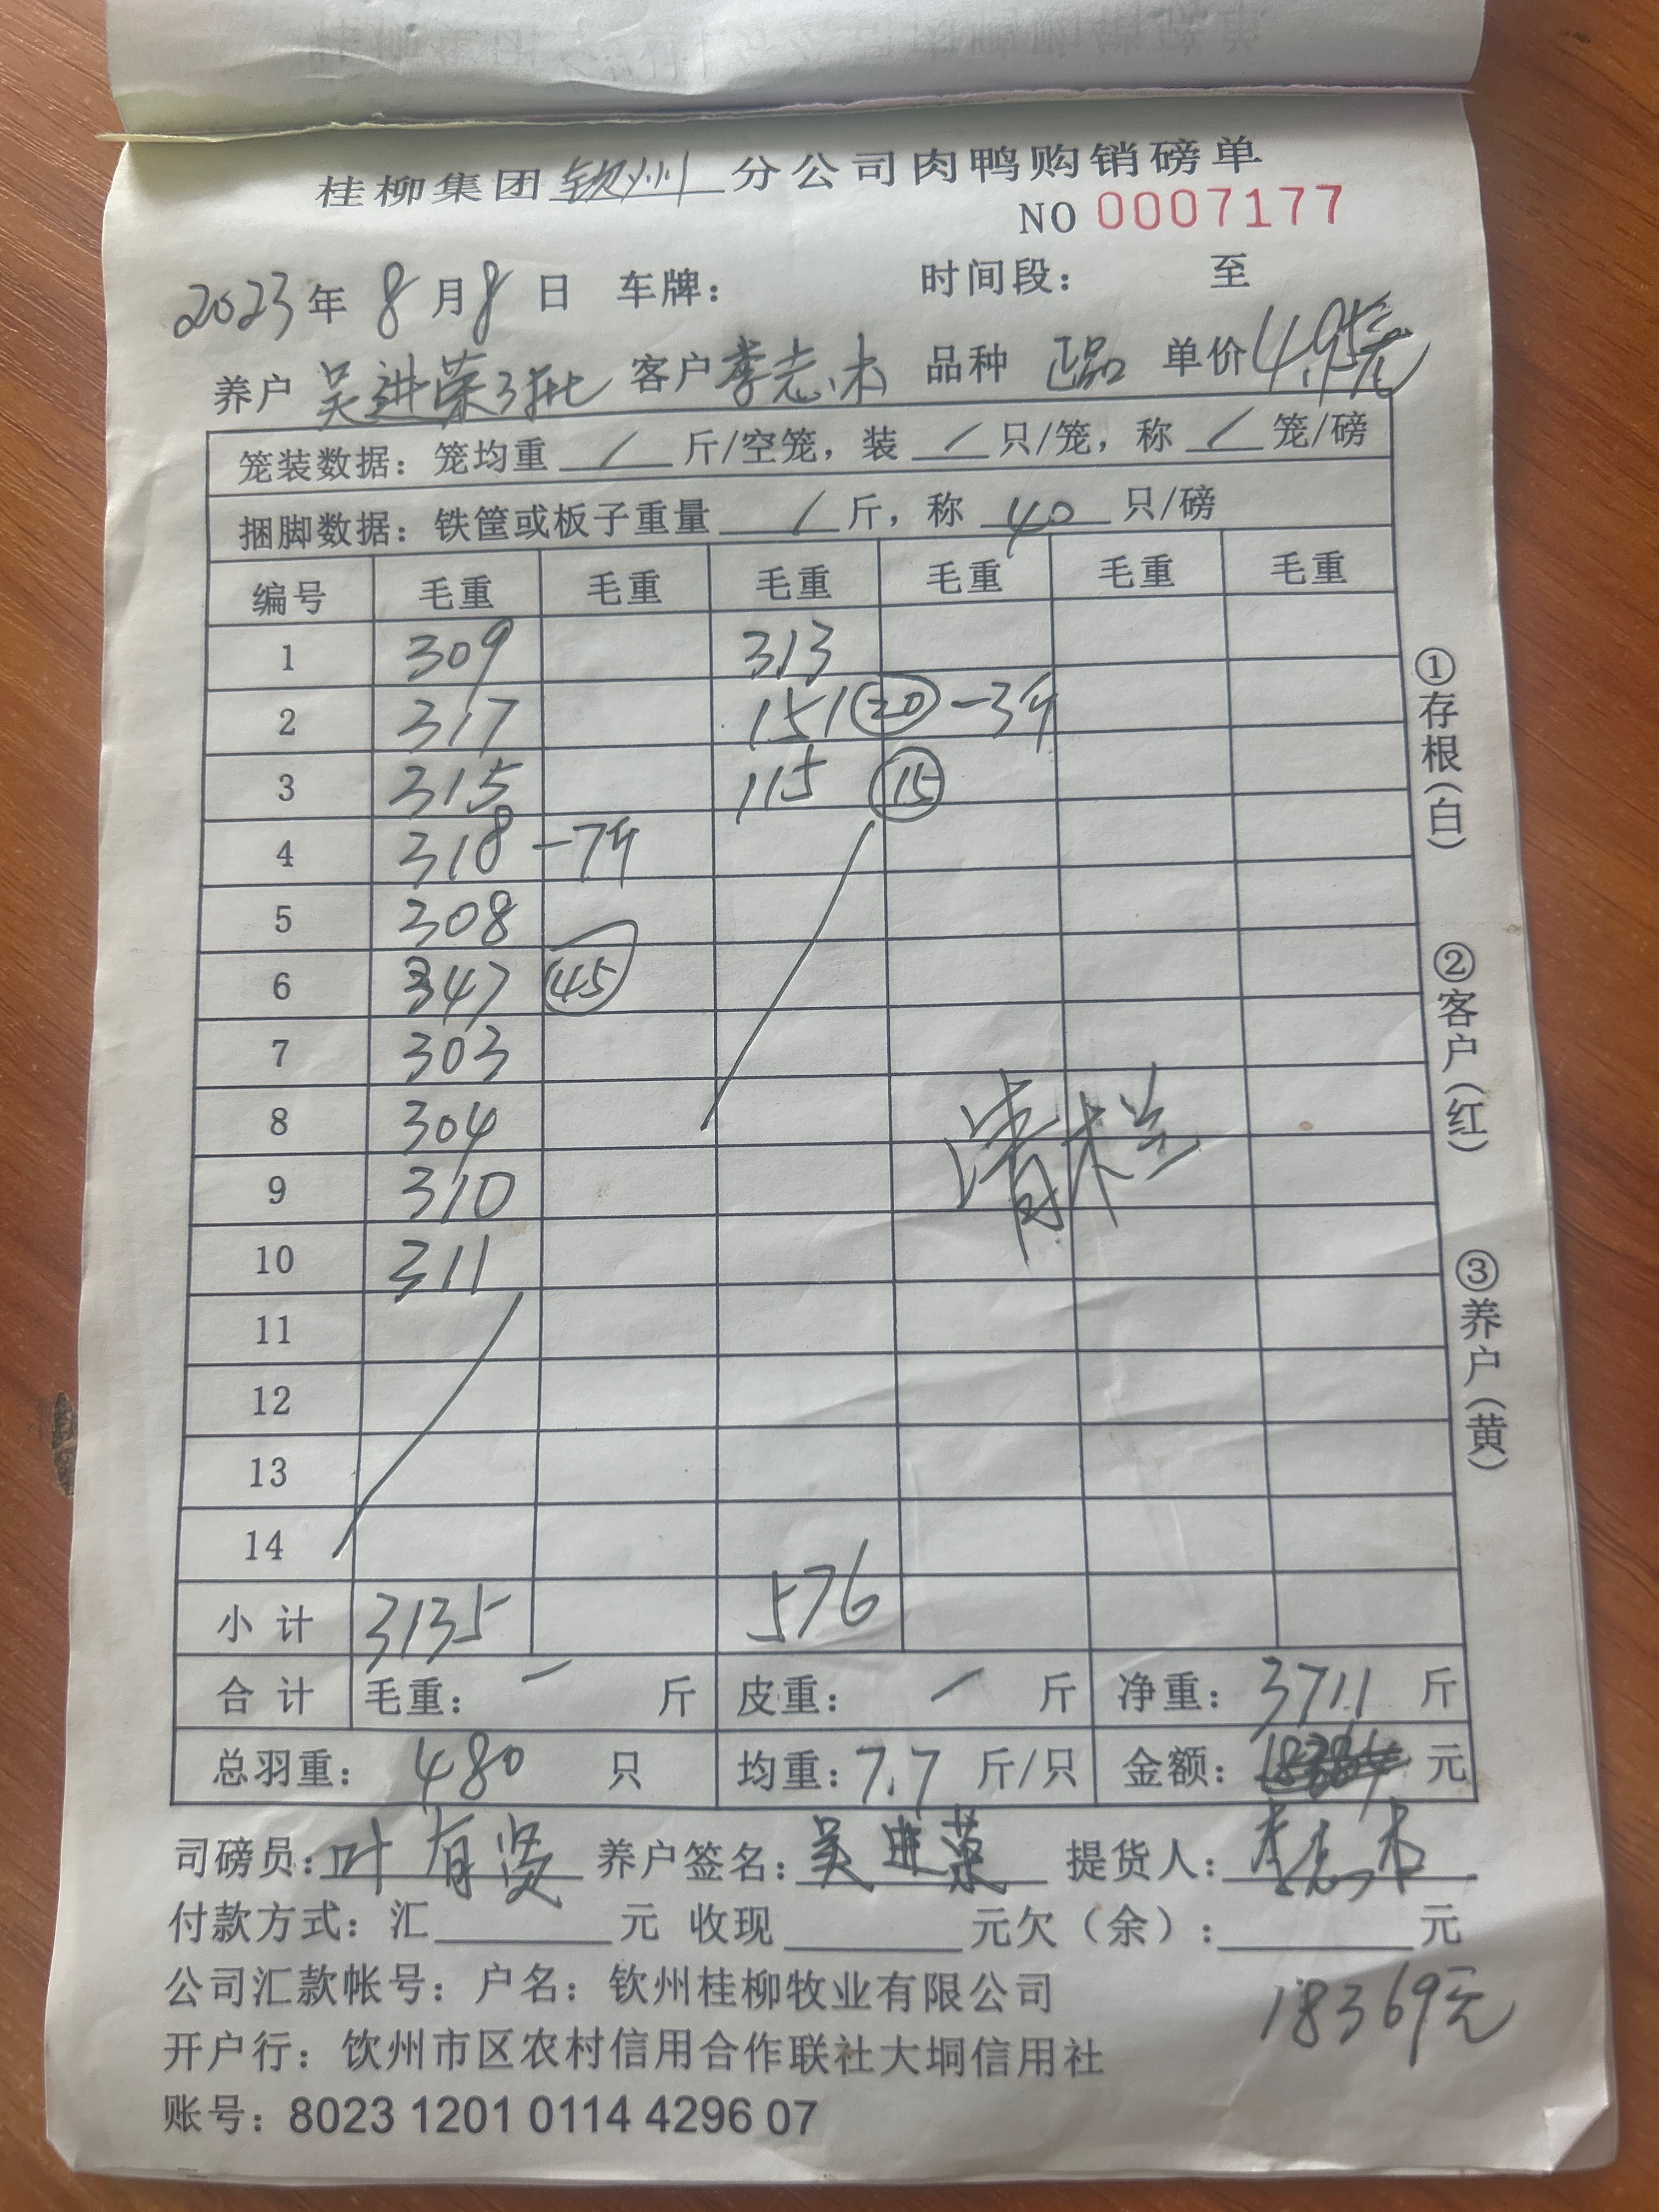 桂柳集团钦州分公司肉鸭购销磅单
NO 0007177
2023年8月8日 车牌: 时间段: 至
养户 吴进荣3批 客户 李志木 品种 正品 单价 4.95元
笼装数据: 笼均重 / 斤/空笼, 装 / 只/笼, 称 / 笼/磅
捆脚数据: 铁筐或板子重量 / 斤, 称 40 只/磅
编号 毛重 毛重 毛重 毛重 毛重 毛重
1 309 313
2 317 151 20 -3斤
3 315 115 15
4 318 -7斤
5 308
6 347 45
7 303
8 304
9 310
10 311
清栏
11
12
13
14
小计 3135 576
合计 毛重: - 斤 皮重: - 斤 净重: 3711 斤
总羽重: 480 只 均重: 7.7 斤/只 金额: 元
司磅员: 叶有贤 养户签名: 吴进荣 提货人: 李志木
付款方式: 汇 元 收现 元欠(余): 元
公司汇款帐号: 户名: 钦州桂柳牧业有限公司
18369元
开户行: 钦州市区农村信用合作联社大垌信用社
账号: 8023 1201 0114 4296 07
①存根(白)
②客户(红)
③养户(黄)